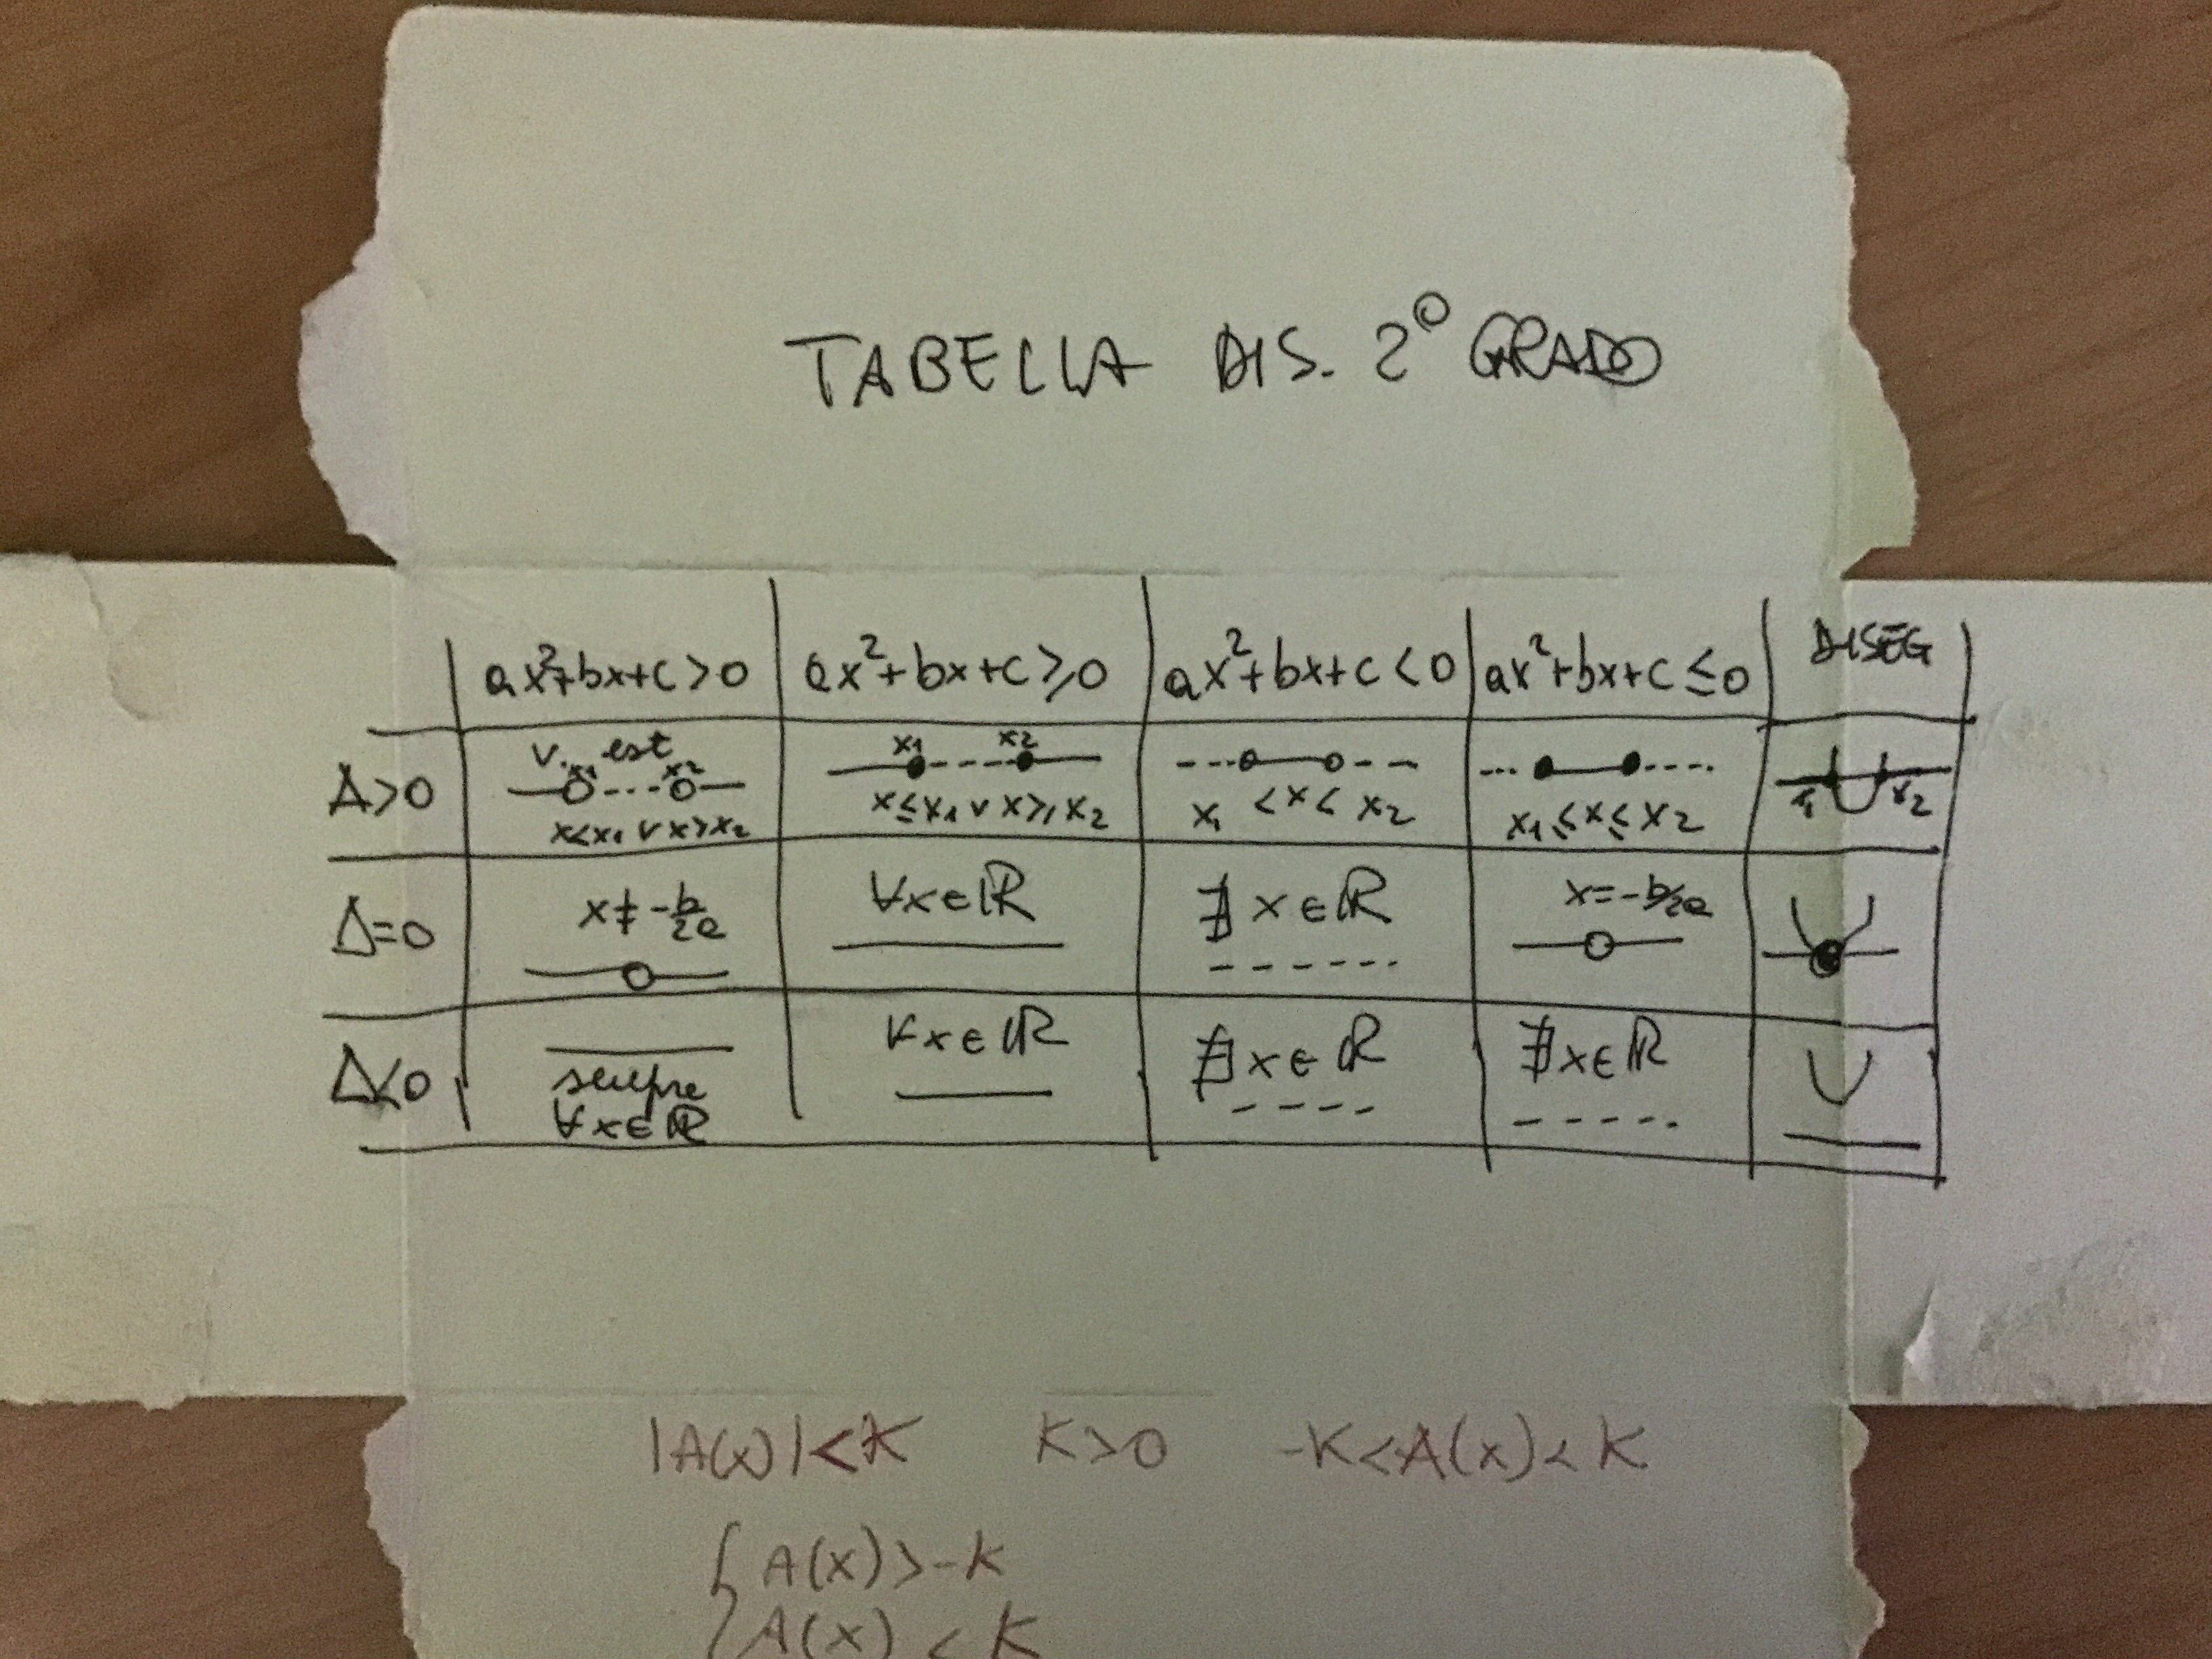 TABELLA DIS. 2° GRADO
ax²+bx+c>0 ax²+bx+c≥0 ax²+bx+c<0 ax²+bx+c≤0 DISEG
Δ>0 v. est x1 x2 x<x1 v x>x2 x1 x2 x≤x1 v x≥x2 x1 <x< x2 x1≤x≤x2 x1 x2
Δ=0 x≠-b/2a ∀x∈ℝ ∄x∈ℝ x=-b/2a
Δ<0 sempre ∀x∈ℝ ∀x∈ℝ ∄x∈ℝ ∄x∈ℝ
|A(x)|<K K>0 -K<A(x)<K
{ A(x)>-K
A(x)<K